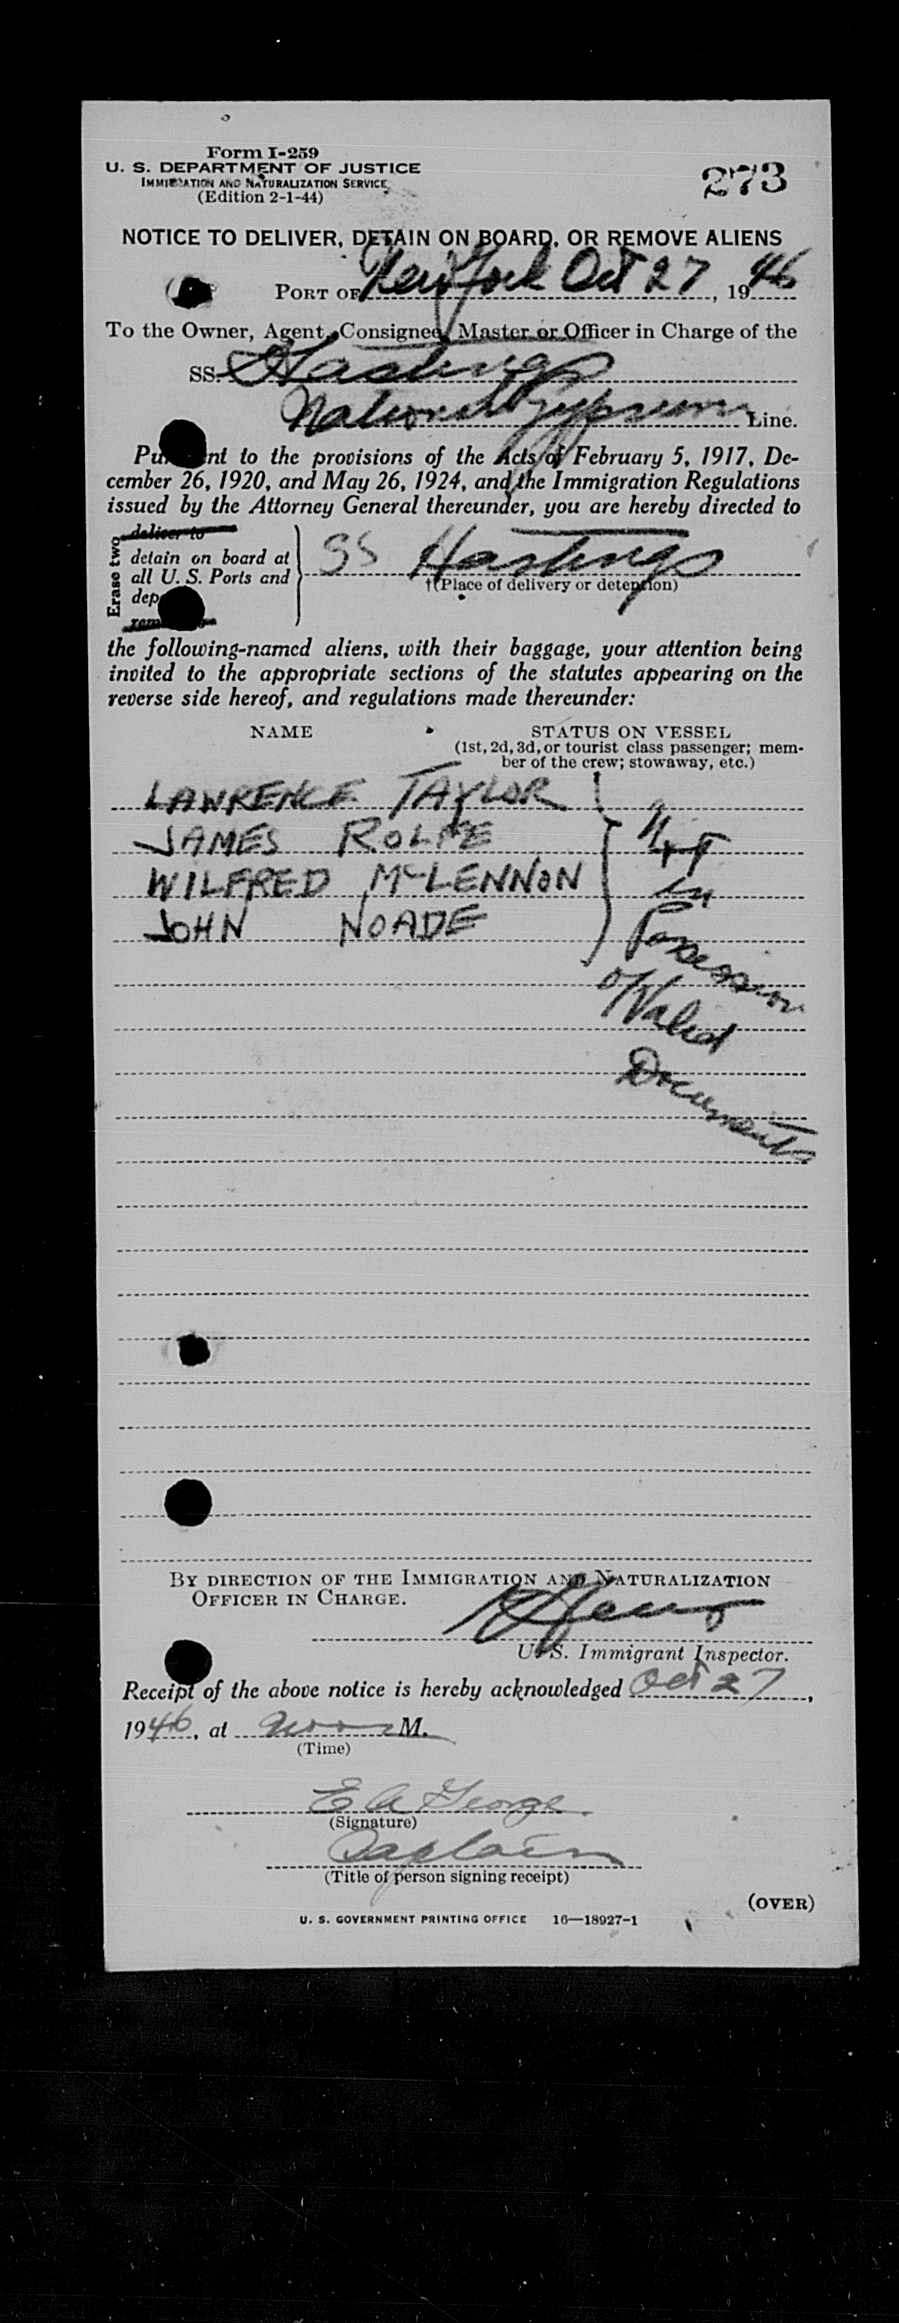 Form I-259
U. S. DEPARTMENT OF JUSTICE
IMMIGRATION AND NATURALIZATION SERVICE
(Edition 2-1-44)
273
NOTICE TO DELIVER, DETAIN ON BOARD, OR REMOVE ALIENS
PORT OF New York Oct 27, 1946
To the Owner, Agent, Consignee, Master or Officer in Charge of the
SS. Hastings
National Gypsum Line.
Pursuant to the provisions of the Acts of February 5, 1917, De-
cember 26, 1920, and May 26, 1924, and the Immigration Regulations
issued by the Attorney General thereunder, you are hereby directed to
Erase two
deliver to
detain on board at
all U. S. Ports and
SS Hastings
†(Place of delivery or detention)
the following-named aliens, with their baggage, your attention being
invited to the appropriate sections of the statutes appearing on the
reverse side hereof, and regulations made thereunder:
NAME
STATUS ON VESSEL
(1st, 2d, 3d, or tourist class passenger; mem-
ber of the crew; stowaway, etc.)
LAWRENCE TAYLOR
JAMES ROLFE
WILFRED McLENNON
JOHN NOADE
Not
in
Possession
of Valid
Documents
BY DIRECTION OF THE IMMIGRATION AND NATURALIZATION
OFFICER IN CHARGE.
U. S. Immigrant Inspector.
Receipt of the above notice is hereby acknowledged Oct 27,
1946, at noon M.
(Time)
E A George
(Signature)
Captain
(Title of person signing receipt)
(OVER)
U. S. GOVERNMENT PRINTING OFFICE 16—18927-1